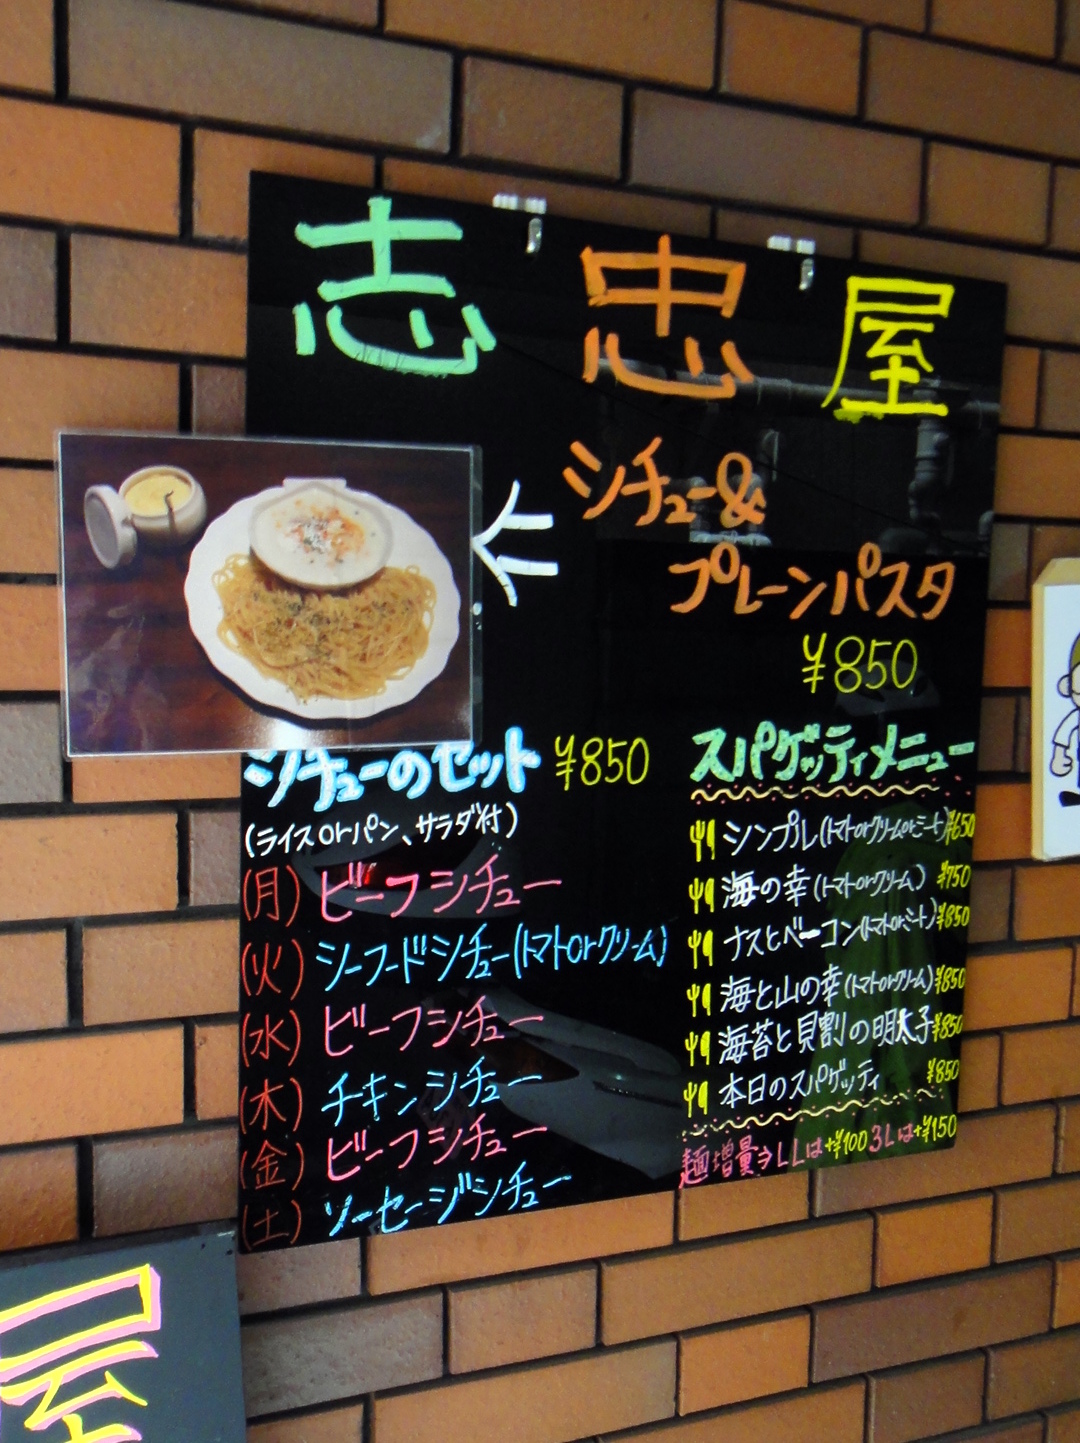 志忠屋
シチュー&
プレーンパスタ
¥850
シチューのセット ¥850
(ライスorパン、サラダ付)
(月) ビーフシチュー
(火) シーフードシチュー(トマトorクリーム)
(水) ビーフシチュー
(木) チキンシチュー
(金) ビーフシチュー
(土) ソーセージシチュー
スパゲッティメニュー
シンプル(トマトorクリームorミート) ¥650
海の幸(トマトorクリーム) ¥750
ナスとベーコン(トマトorミート) ¥850
海と山の幸(トマトorクリーム) ¥850
海苔と貝割の明太子 ¥850
本日のスパゲッティ ¥850
麺増量⇒LLは+¥100 3Lは+¥150